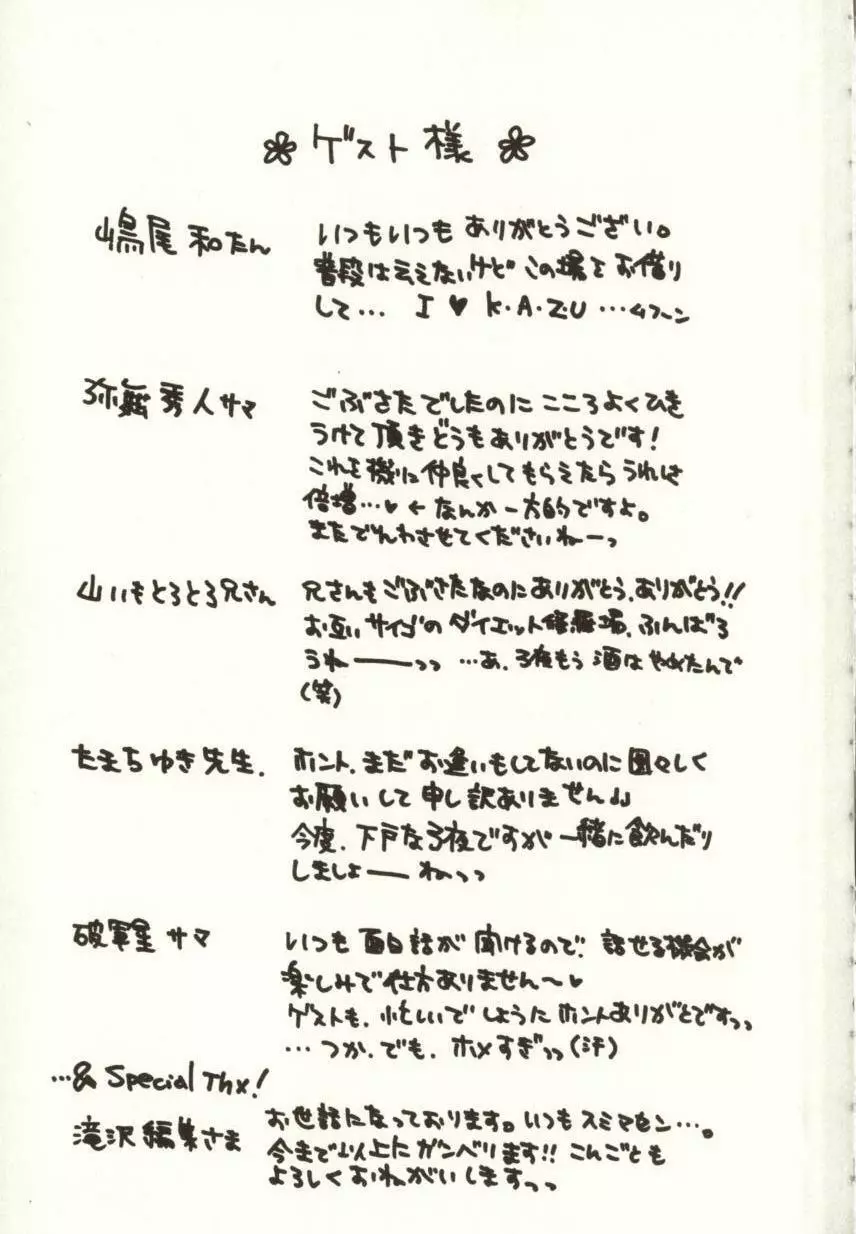 ゲスト様
嶋尾和たん
いつもいつもありがとうござい。
普段は云えないけどこの場をお借り
して… I ♥ K・A・Z・U …ムフーン
弥 秀人サマ
ごぶさたでしたのにこころよくひき
うけて頂きどうもありがとうです!
これを機に仲良くしてもらえたらうれしさ
倍増…♥ ← なんか一方的ですよ。
またでんわさせてくださいねーっ
山いもとろとろ兄さん
兄さんもごぶさたなのにありがとう、ありがとう!!
お互いサイゴのダイエット修羅場、ふんばろ
うねーーーっっ …あ、3夜もう酒はやめたんで
(笑)
たまちゆき先生.
ホント、まだお逢いもしてないのに図々しく
お願いして申し訳ありません
今度、下戸な3夜ですが一緒に飲んだり
しましょーーねっっ
破軍星サマ
いつも面白話が聞けるので、話せる機会が
楽しみで仕方ありません〜♥
ゲストも、忙しいでしょうにホントありがとですっっ
…つか、でも、ホメすぎっっ(汗)
…& Special Thx!
滝沢編集さま
お世話になっております。いつもスミマセン…。
今まで以上にガンバリます!! こんごとも
よろしくおねがいしますっっ